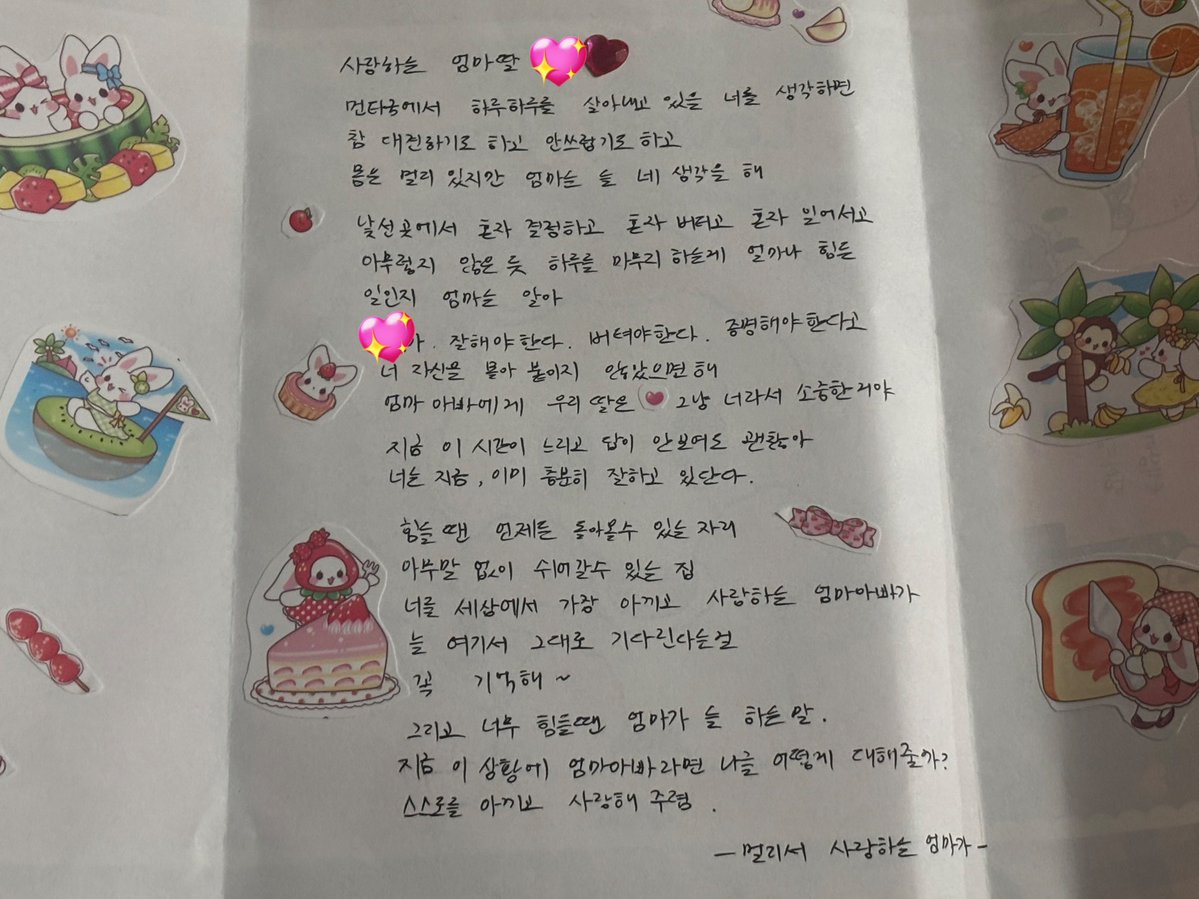 사랑하는 엄마딸
먼타국에서 하루하루를 살아내고 있을 너를 생각하면
참 대견하기도 하고 안쓰럽기도하고
몸은 멀리 있지만 엄마는 늘 네 생각을 해
낯선곳에서 혼자 결정하고 혼자 버티고 혼자 일어서고
아무렇지 않은 듯 하루를 마무리 하는게 얼마나 힘든
일인지 엄마는 알아
아. 잘해야한다. 버텨야한다. 증명해야한다고
너 자신을 몰아 붙이지 않았으면 해
엄마 아빠에게 우리 딸은 그냥 너라서 소중한거야
지금 이 시간이 느리고 답이 안보여도 괜찮아
너는 지금, 이미 충분히 잘하고 있단다.
힘들땐 언제든 돌아올수 있는 자리
아무말 없이 쉬어갈수 있는 집
너를 세상에서 가장 아끼고 사랑하는 엄마아빠가
늘 여기서 그대로 기다린다는걸
꼭 기억해~
그리고 너무 힘들땐 엄마가 늘 하는말.
지금 이 상황에 엄마아빠라면 나를 어떻게 대해줄까?
스스로를 아끼고 사랑해 주렴.
- 멀리서 사랑하는 엄마가 -